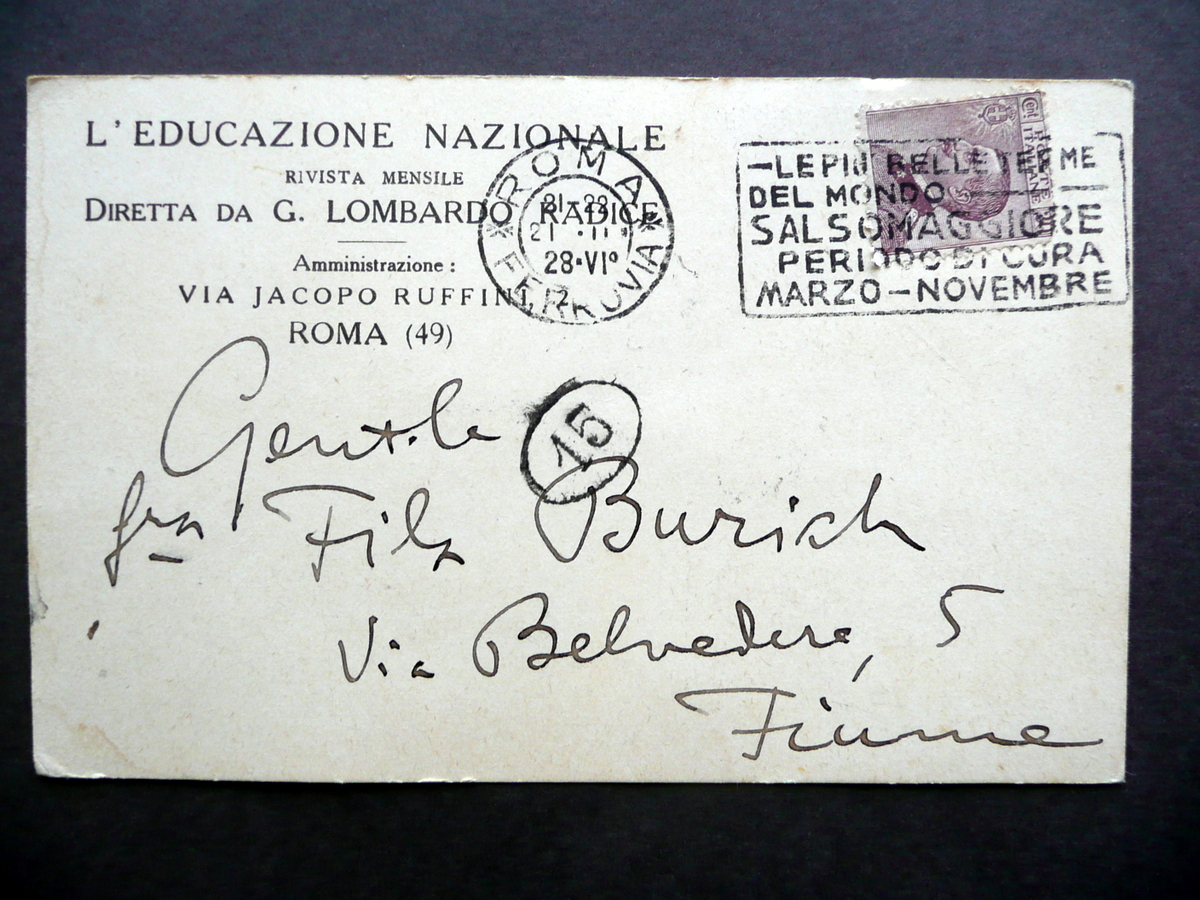 L'EDUCAZIONE NAZIONALE
RIVISTA MENSILE
DIRETTA DA G. LOMBARDO RADICE
Amministrazione:
VIA JACOPO RUFFINI, 2
ROMA (49)
* ROMA * FERROVIA
21 · II
28·VI°
—LE PIÙ BELLE TERME
DEL MONDO —
SALSOMAGGIORE
PERIODO DI CURA
MARZO—NOVEMBRE
Cent.
POSTE
ITALIANE
15
Gentile
Fily Burich
Via Belvedere, 5
Fiume